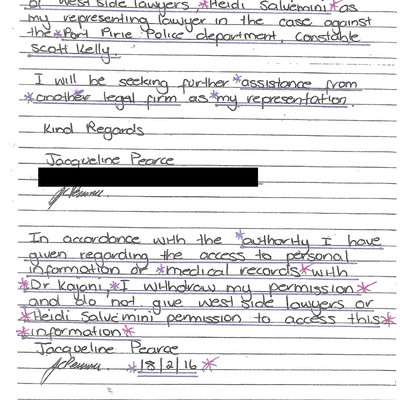 of west side lawyers, *Heidi Salvemini* as
my representing lawyer in the case against
the *Port Pirie Police department, constable
scott Kelly.
I will be seeking further *assistance from
*another legal firm as *my representation.
Kind Regards
Jacqueline Pearce
In accordance with the *authority I have
given regarding the access to personal
information or *medical records* with
*Dr Kajani, *I withdraw my permission*
and do not give west side lawyers or
*Heidi Salvemini permission to access this*
*information*
Jacqueline Pearce
*18/2/16*